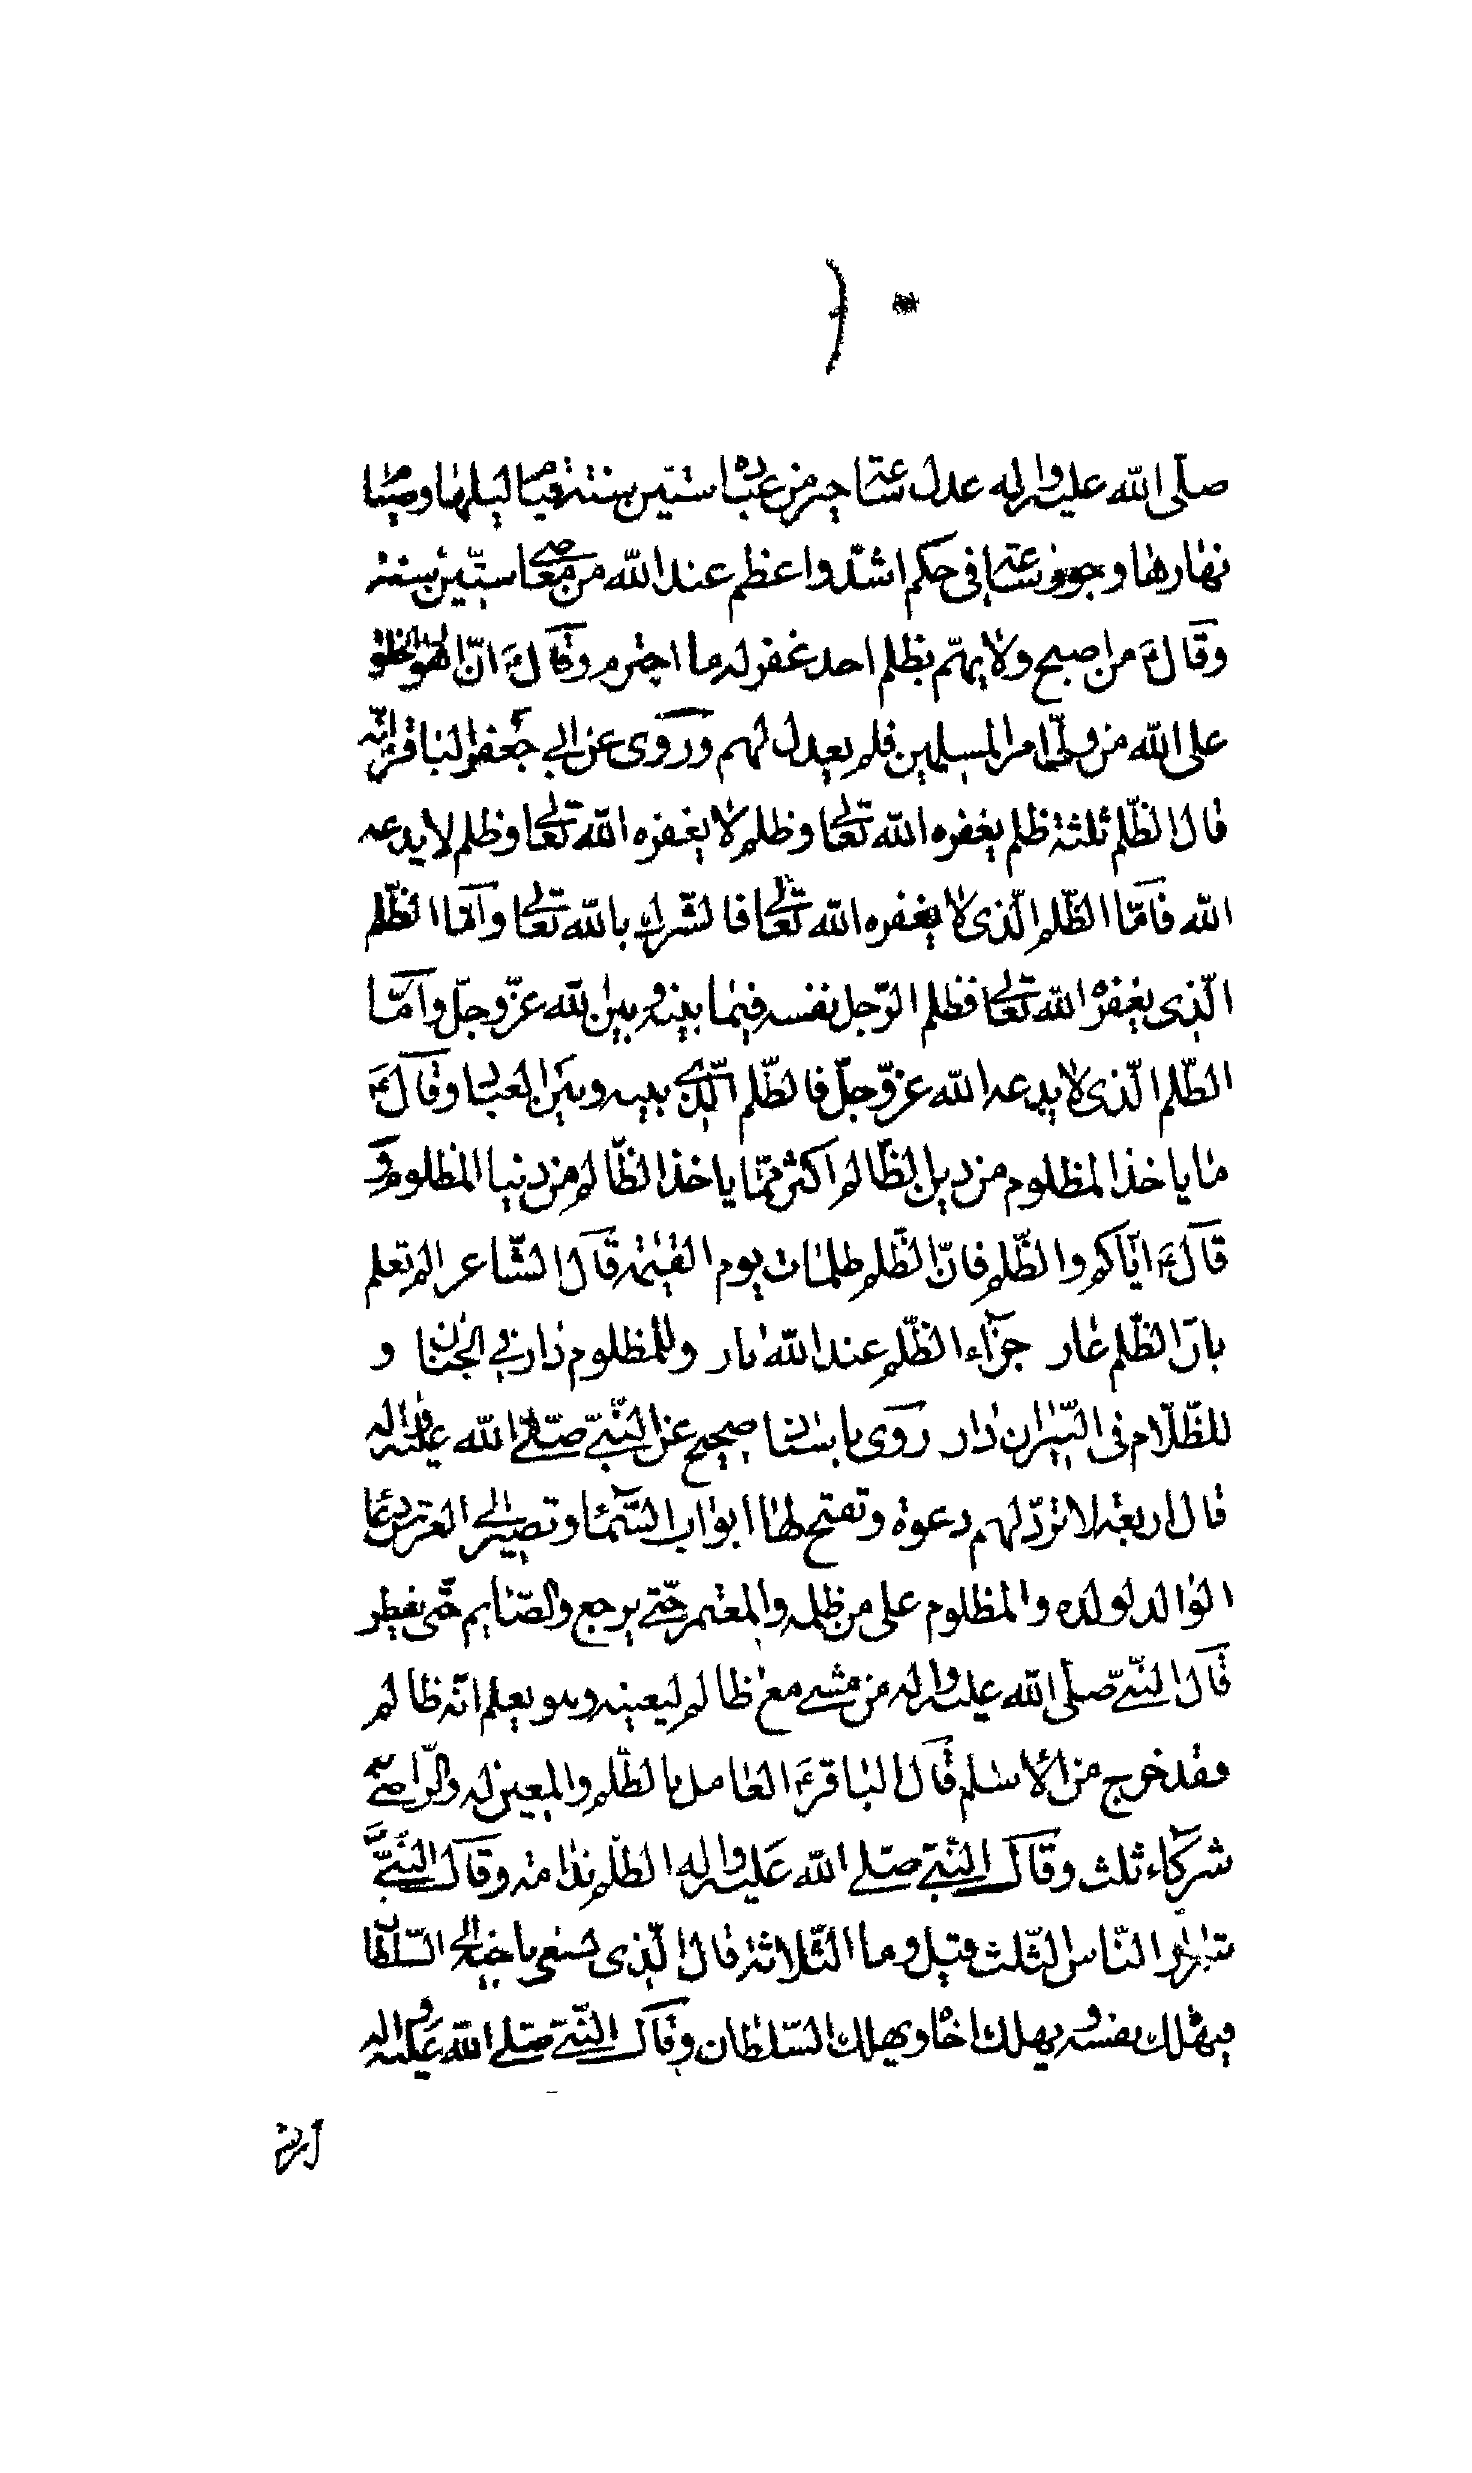 صلّى الله عليه واله عدل ساعة خير من عبادة ستين سنة قيام ليلها وصيام
نهارها وجور ساعة في حكم اشدّ واعظم عند الله من معاصي ستّين سنة
وقال ع من اصبح ولا يهمّ بظلم احد غفر له ما اجترم وقال ع انّ اهون الخلق
على الله من ولّى امر المسلمين فلم يعدل لهم وروى عن ابي جعفر الباقر ع انّه
قال الظّلم ثلثة ظلم يغفره الله تعالى وظلم لا يغفره الله تعالى وظلم لا يدعه
الله فامّا الظّلم الّذى لا يغفره الله تعالى فالشّرك بالله تعالى وامّا الظّلم
الّذى يغفره الله تعالى فظلم الرّجل نفسه فيما بينه وبين الله عزّ وجلّ وامّا
الظّلم الّذى لا يدعه الله عزّ وجلّ فالظّلم الّذى بينه وبين العباد وقال ع
ما ياخذ المظلوم من دين الظّالم اكثر ممّا ياخذ الظّالم من دنيا المظلوم و
قال ع ايّاكم والظّلم فانّ الظّلم ظلمات يوم القيمة قال الشّاعر الم تعلم
بانّ الظّلم عار جزآء الظّلم عند الله نار وللمظلوم دار في الجنان و
للظّلّام فى النّيران دار روى باسناد صحيح عن النّبيّ صلّى الله عليه واله
قال اربعة لا تردّ لهم دعوة وتفتح لها ابواب السّمآء وتصير الى العرش دعاء
الوالد لولده والمظلوم على من ظلمه والمعتمر حتّى يرجع والصّايم حتّى يفطر
قال النّبيّ صلّى الله عليه واله من مشى مع ظالم ليعينه وهو يعلم انّه ظالم
فقد خرج من الاسلم قال الباقر ع العامل بالظّلم والمعين له والرّاضى
شركآء ثلث وقال النّبيّ صلّى الله عليه واله الظّلم ندامة وقال النّبيّ ص
شرار النّاس الثّلث قيل وما الثّلاثة قال الّذى يسعى باخيه الى السّلطان
فيهلك نفسه ويهلك اخاه ويهلك السّلطان وقال النّبيّ صلّى الله عليه واله